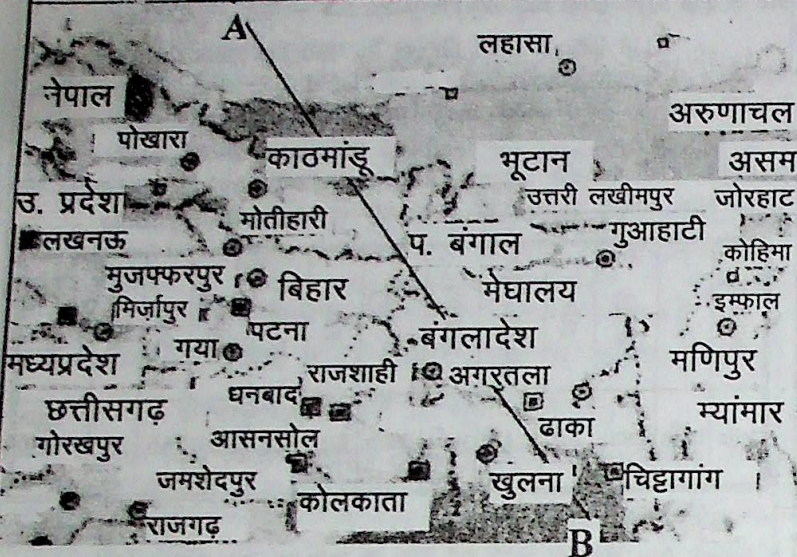 A
लहासा
नेपाल
अरुणाचल
पोखारा
काठमांडू
भूटान
असम
उ. प्रदेश
उत्तरी लखीमपुर
जोरहाट
मोतीहारी
लखनऊ
प. बंगाल
गुआहाटी
कोहिमा
मुजफ्फरपुर
बिहार
मेघालय
मिर्जापुर
इम्फाल
पटना
बंगलादेश
गया
मध्यप्रदेश
मणिपुर
राजशाही
अगरतला
धनबाद
छत्तीसगढ़
म्यांमार
ढाका
गोरखपुर
आसनसोल
जमशेदपुर
खुलना
चिट्टागांग
कोलकाता
राजगढ़
B